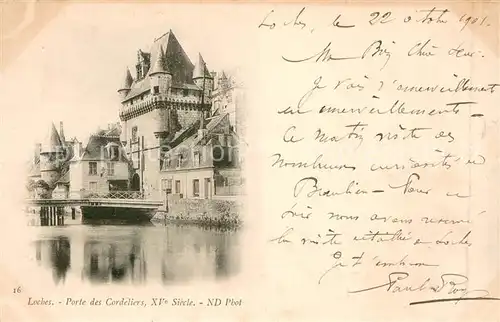 Loches, le 22 octobre 1901
Ma
Je vais d'émerveillement
en émerveillements -
Ce matin visite des
nombreuses curiosités de
Beaulieu - Pour ce
soir nous avons réservé
la visite de Loches,
Je t'embrasse
Paul
16
Loches. - Porte des Cordeliers, XVe Siècle. - ND Phot